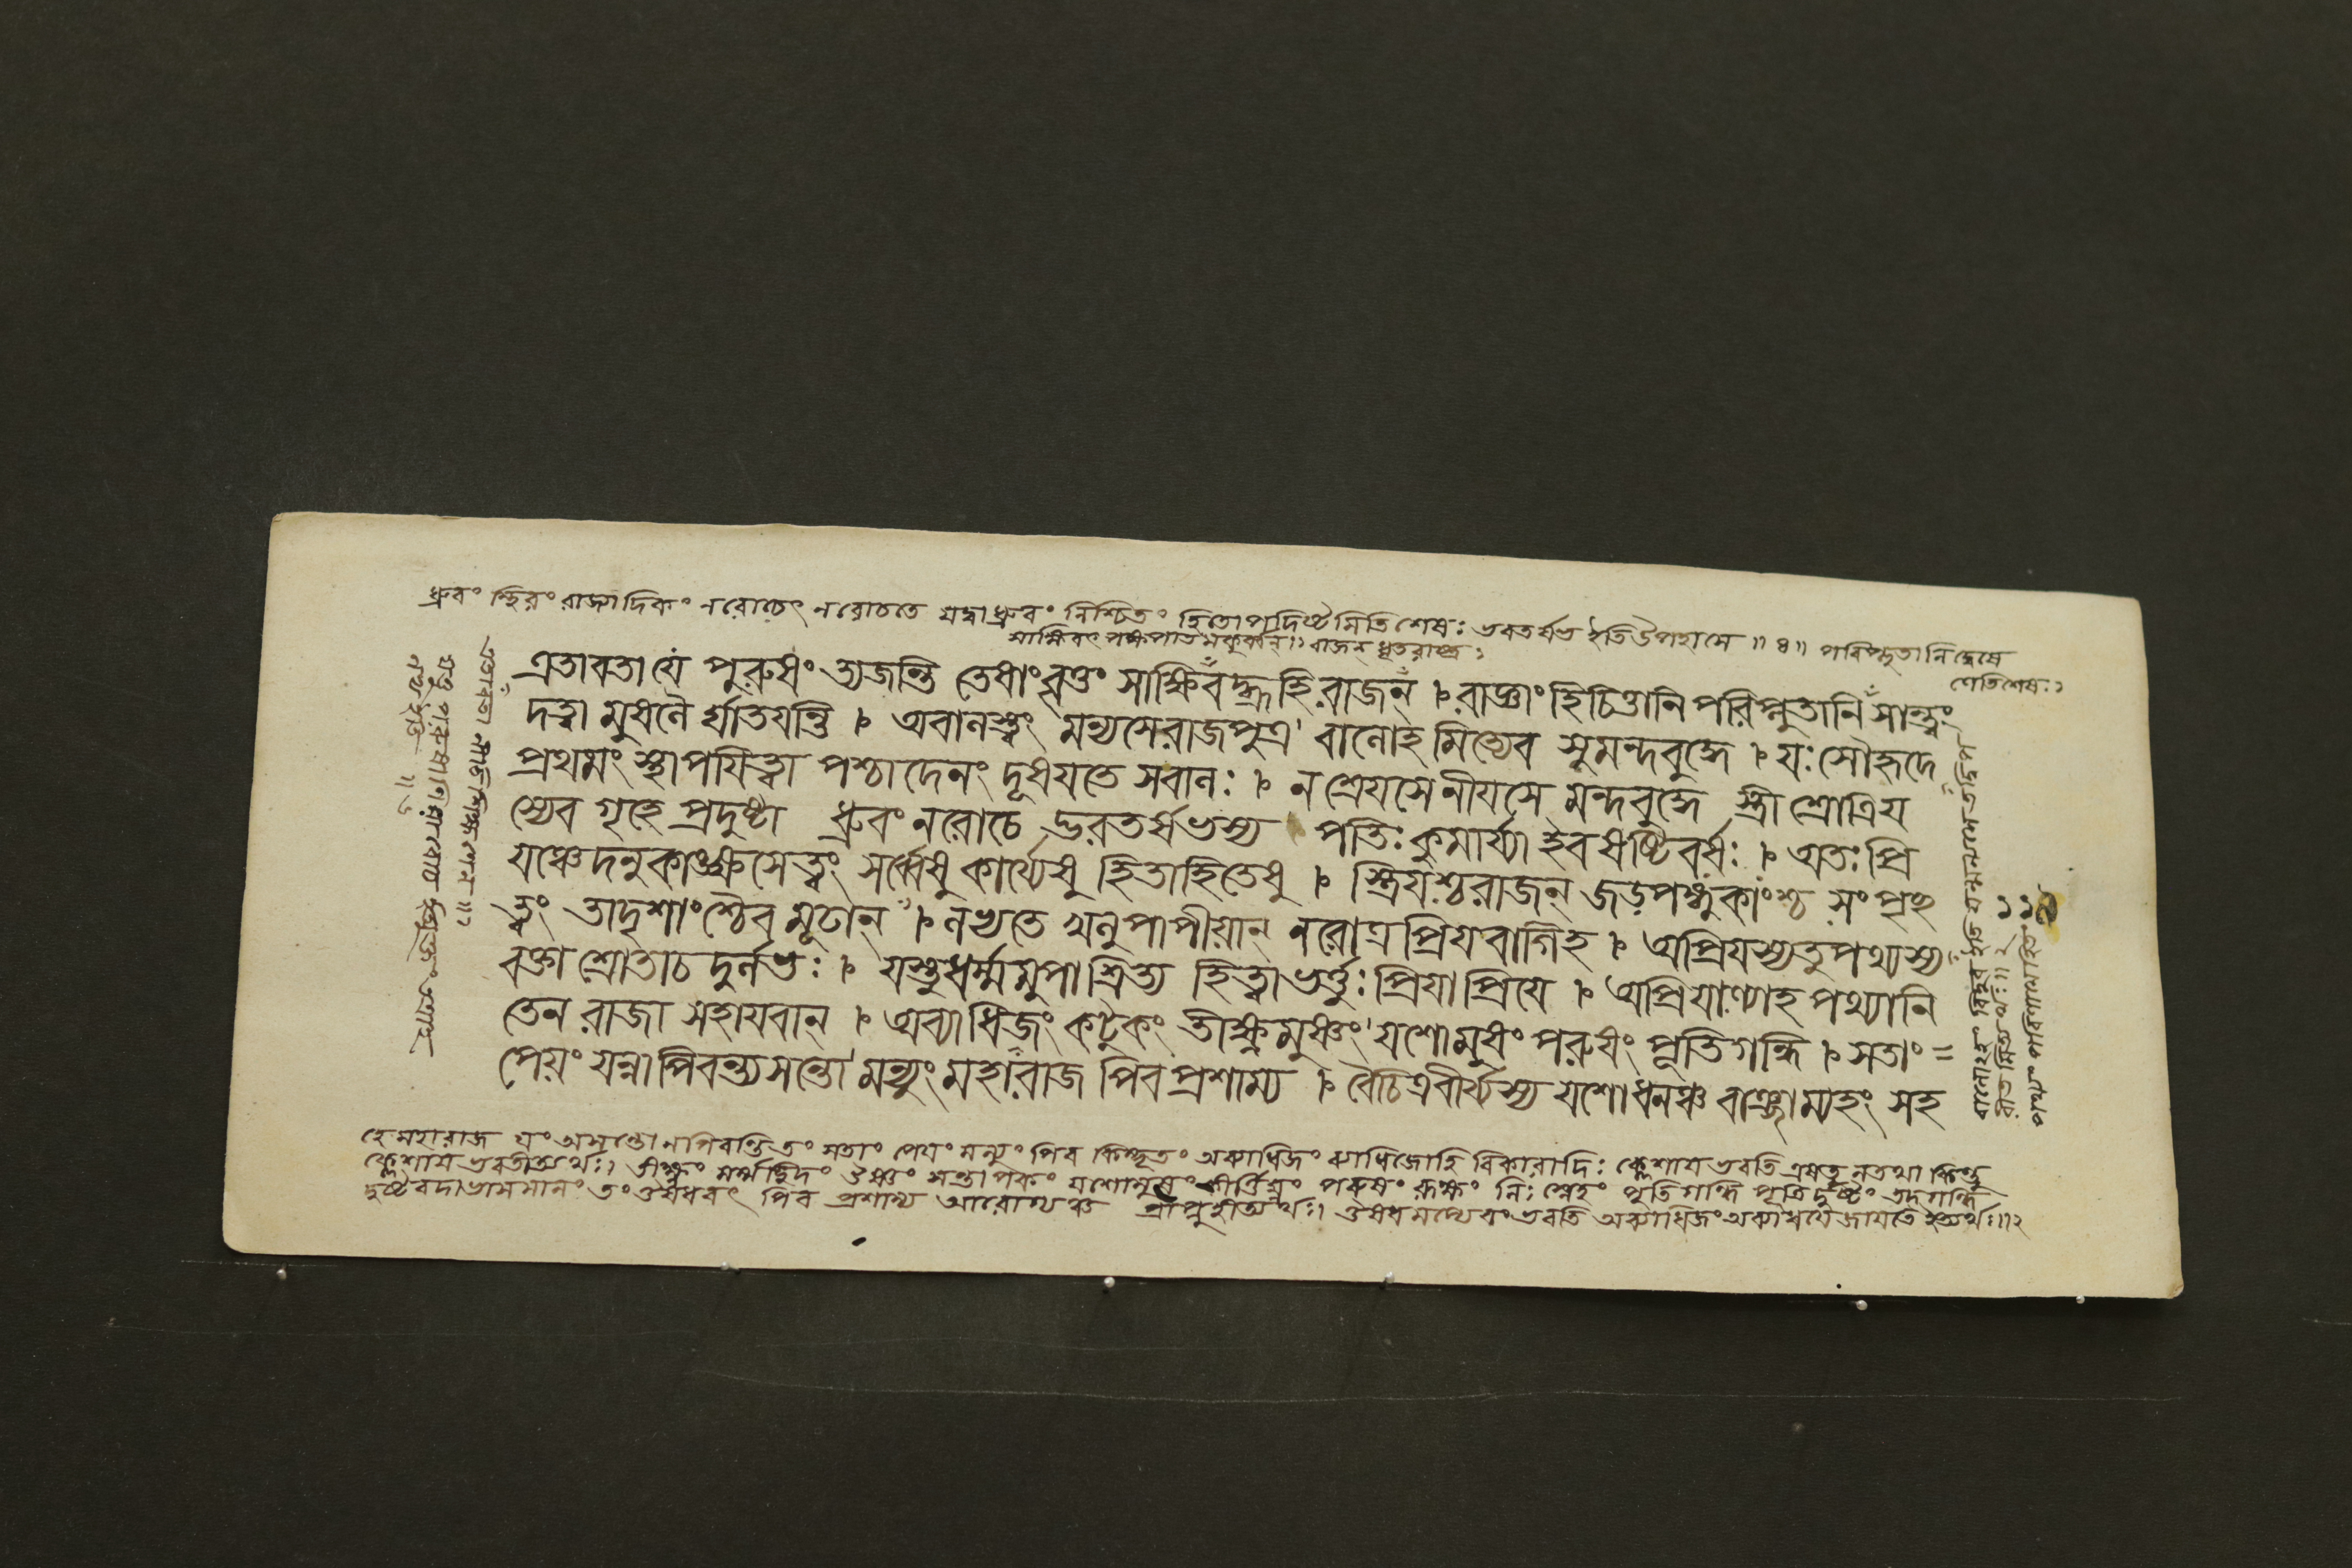 ধ্রুবং স্থিরং রাজ্যাদিকং নরোচেৎ নরোচতে যদ্বা ধ্রুবং নিশ্চিতং হিতোপদিষ্টমিতিশেষঃ ভরতর্ষভ ইতিউপহাসে ॥ ৪॥ পরিপ্লুতানি দ্বেষে
সাক্ষিবৎ পক্ষপাতমকুর্বন্ ।১ রাজন্ ধৃতরাষ্ট্র ১
ণেতিশেষঃ ১
এতাবতা যে পুরুষং ত্যজন্তি তেষাং বৃত্তং সাক্ষিবদ্ব্রূহি রাজন্ । রাজ্ঞাং হি চিত্তানি পরিপ্লুতানি সান্ত্বং
দত্ত্বা মুষলৈর্ঘাতযন্তি । অবালস্ত্বং মন্যসে রাজপুত্র বালোহমিত্যেব সুমন্দবুদ্ধে । যঃ সৌহৃদে
প্রথমং স্থাপযিত্বা পশ্চাদেনং দূষযতে সবালঃ । ন শ্রেযসে নীযসে মন্দবুদ্ধে স্ত্রী শ্রোত্রিয
স্যেব গৃহে প্রদুষ্টা ধ্রুবং নরোচেদ্ভরতর্ষভস্য পতিঃ কুমার্য্যা ইব ষষ্টিবর্ষঃ । অতঃ প্রি
যঞ্চেদনুকাঙ্ক্ষসেত্বং সর্ব্বেষু কার্য্যেষু হিতাহিতেষু । স্ত্রিযশ্চ রাজন্ জড়পঙ্গুকাংশ্চ সংপৃচ্ছ
ত্বং তাদৃশাংশ্চৈব মূঢান্ । লভ্যতে খলু পাপীয়ান্ নরোত্র প্রিযবাগিহ । অপ্রিযস্যতু পথ্যস্য
বক্তা শ্রোতাচ দুর্লভঃ । যস্তু ধর্ম্মমুপাশ্রিত্য হিত্বা ভর্ত্তুঃ প্রিযাপ্রিযে । অপ্রিযাণ্যাহ পথ্যানি
তেন রাজা সহাযবান্ । অব্যাধিজং কটুকং তীক্ষ্ণমুষ্ণং যশোমুষং পরুষং পূতিগন্ধি । সতাং =
পেয়ং যন্নাপিবন্ত্যসন্তো মন্যুং মহারাজ পিব প্রশাম্য । বৈচিত্রবীর্য্যস্য যশোধনঞ্চ বাঞ্ছাম্যহং সহ
হে মহারাজ যং অসন্তো নপিবন্তি তং সতাং পেযং মন্যুং পিব কিম্ভূতং অব্যাধিজং ব্যাধিজোহি বিকারাদিঃ ক্লেশায ভবতি এষতু নতথা কিন্তু
ক্লেশায ভবতীত্যর্থঃ। তীক্ষ্ণং মর্ম্মচ্ছিদং ঔষ্ণং সন্তাপকং যশোমুষং কীর্ত্তিঘ্নং পরুষং রূক্ষং নিঃস্নেহং পূতিগন্ধি পূতিদুষ্টং তদ্গন্ধি
দুষ্টবদাভাসমানং তং ঔষধবৎ পিব প্রশাম্য আরোগ্যঞ্চ প্রাপ্নুহীত্যর্থঃ। ঔষধমপ্যেবং ভবতি অব্যাধিজং অব্যাধযে জাযতে ইত্যর্থঃ॥২